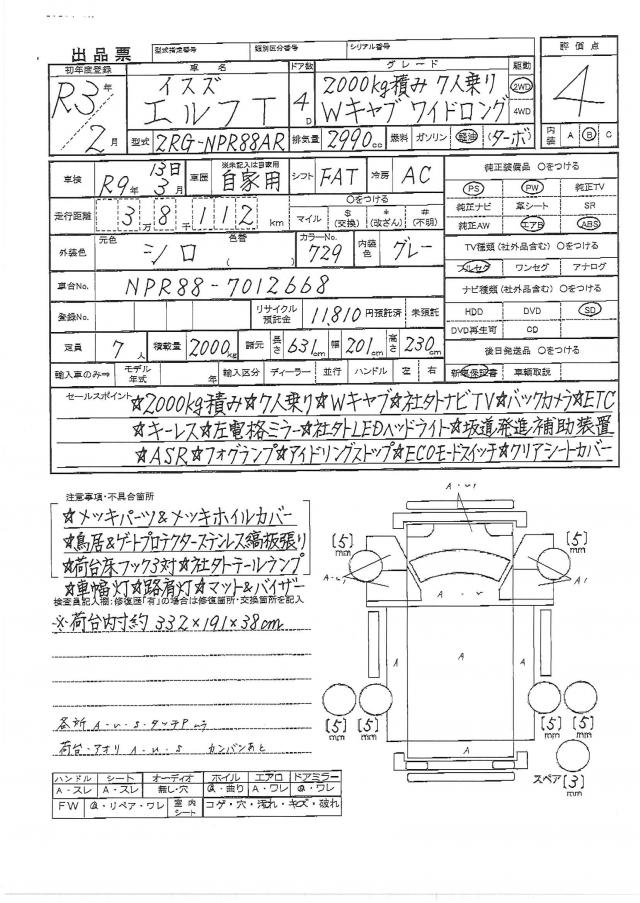 出品票 型式指定番号 類別区分番号 シリアル番号
初年度登録 車名 ドア数 グレード 駆動 評価点
R3年 イスズ 4D 2000kg積み 7人乗り 2WD 4
2月 エルフT Wキャブ ワイドロング 4WD
型式 2RG-NPR88AR 排気量 2990cc 燃料 ガソリン 軽油 (ターボ) 内装 A B C
車検 R9年 13日 3月 車歴 ※未記入は自家用 自家用 シフト FAT 冷房 AC
走行距離 3万8千112km
○をつける
マイル $(交換) *(改ざん) #(不明)
外装色 元色 シロ 色替 ( ) カラーNo. 729 内装色 グレー
車台No. NPR88-7012668
登録No. リサイクル預託金 11,810円預託済 未預託
定員 7人 積載量 2000kg 諸元 長さ 631cm 幅 201cm 高さ 230cm
輸入車のみ⇒ モデル年式 年 輸入区分 ディーラー 並行 ハンドル 左 右
純正装備品 ○をつける
PS PW 純正TV
純正ナビ 革シート SR
純正AW エアB ABS
TV種類(社外品含む) ○をつける
フルセグ ワンセグ アナログ
ナビ種類(社外品含む) ○をつける
HDD DVD SD
DVD再生可 CD
後日発送品 ○をつける
新車保証書 車輌取説
セールスポイント ☆2000kg積み☆7人乗り☆Wキャブ☆社外ナビTV☆バックカメラ☆ETC
☆キーレス☆左電格ミラー☆社外LEDヘッドライト☆坂道発進補助装置
☆ASR☆フォグランプ☆アイドリングストップ☆ECOモードスイッチ☆クリアシートカバー
注意事項・不具合箇所
☆メッキパーツ&メッキホイルカバー
☆鳥居&ゲートプロテクターステンレス縞板張り
☆荷台床フック3対☆社外テールランプ
☆車幅灯☆路肩灯☆マット&バイザー
検査員記入欄:修復歴「有」の場合は修復箇所・交換箇所を記入
※荷台内寸約 332×191×38cm
各所 A・U・S・タッチP
荷台・アオリ A・U・S カンバンあと
A・U1
[5]mm [5]mm
A・U1 A1
A・U
A A A
[5]mm [5]mm [5]mm [5]mm
A
スペア [3]mm
ハンドル シート オーディオ ホイル エアロ ドアミラー
A・スレ A・スレ 無し・穴 A・曲り A・ワレ A・ワレ
FW A・リペア・ワレ 室内シート コゲ・穴・汚れ・キズ・破れ